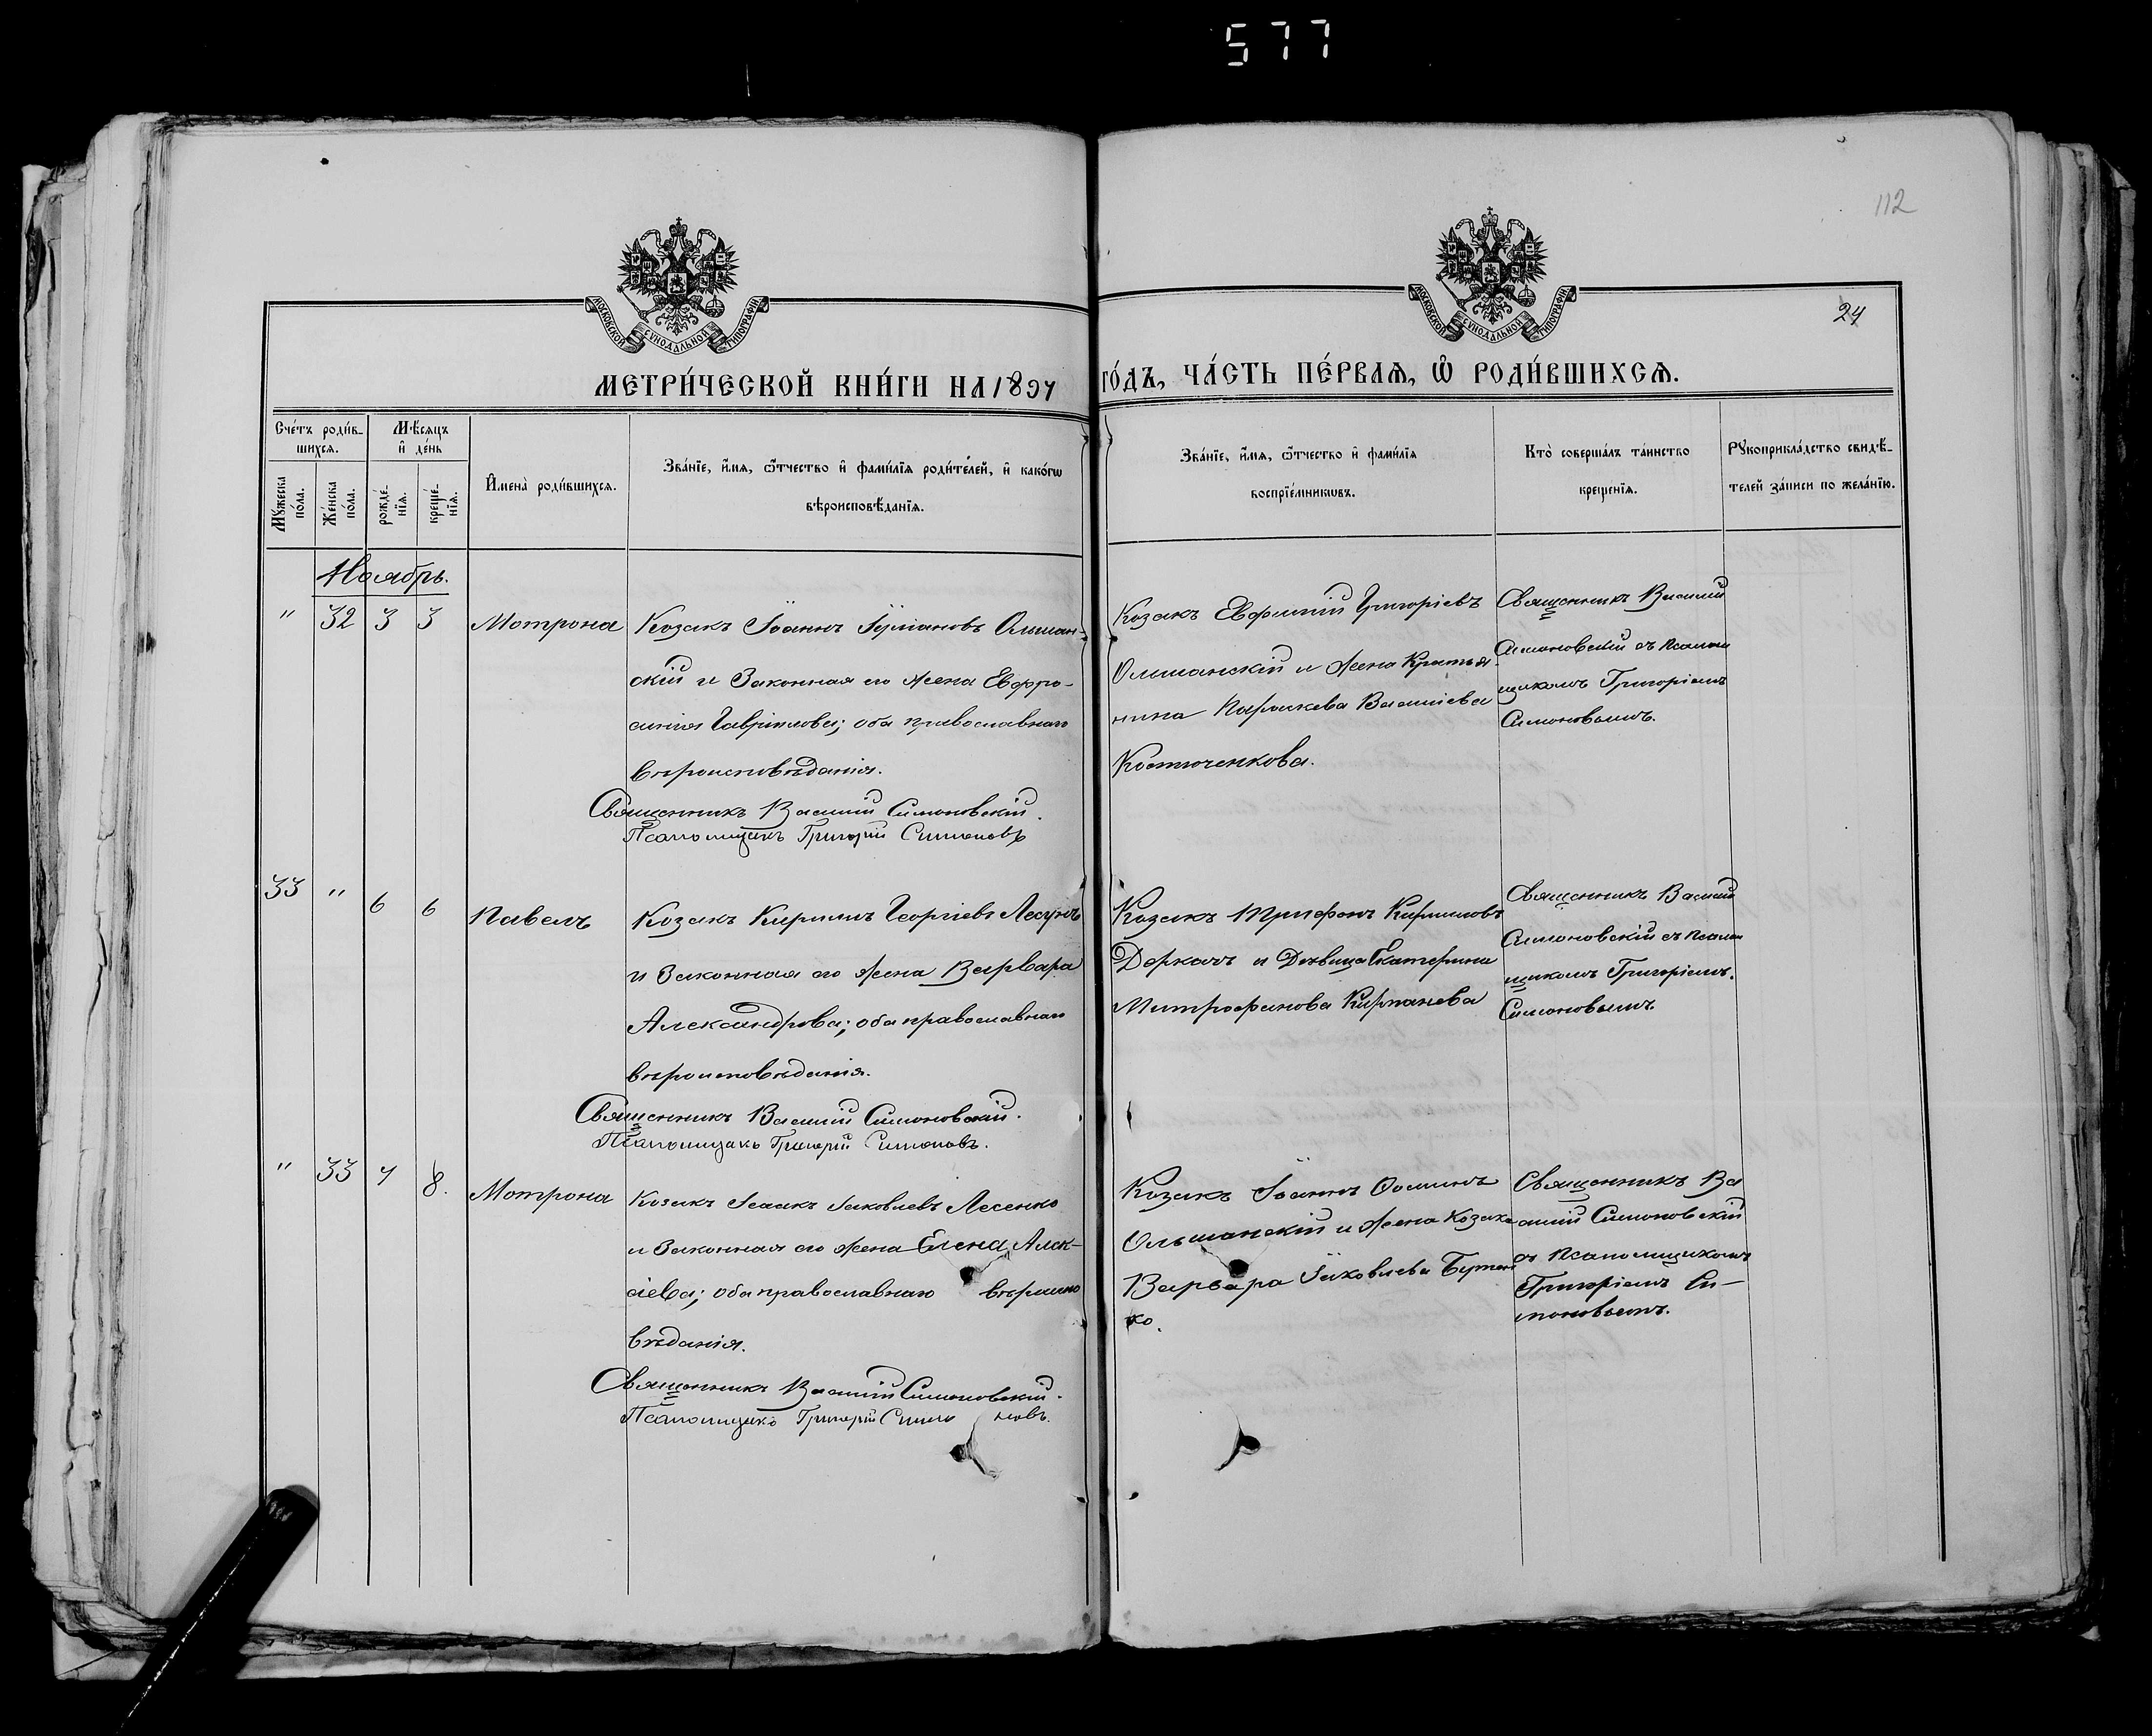 577
112
24
МОСКОВСКОЙ СѴНОДАЛЬНОЙ ТИПОГРАФІИ
МОСКОВСКОЙ СѴНОДАЛЬНОЙ ТИПОГРАФІИ
МЕТРИ́ЧЕСКОЙ КНИ́ГИ НА 1897 ГО́ДЪ, ЧА́СТЬ ПЕ́РВАЯ, Ѡ҆ РОДИ́ВШИХСЯ.
Сче́тъ роди́в-
шихся.
Мѣ́сяцъ
и҆ де́нь
Мꙋ́жеска по́ла.
Же́нска по́ла.
рожде́-
нїя.
креще́-
нїя.
И҆мена̀ роди́вшихся.
Зва́нїе, и҆́мя, ѻ҆́тчество и҆ фами́лїя роди́телей, и҆ како́гѡ
вѣроисповѣ́данїя.
Зва́нїе, и҆́мя, ѻ҆́тчество и҆ фами́лїя
воспрїе́мникѡвъ.
Кто̀ соверша́лъ та́инство
креще́нїя.
Рꙋкоприкла́дство свидѣ́-
телей за́писи по жела́нїю.
Ноябрь.
" 32 3 3
Мотрона
Козакъ Іоаннъ Іуліановъ Ольшан-
скій и Законная его жена Евфро-
синія Гавріилова; оба православнаго
вѣроисповѣданія.
Священникъ Василій Симоновскій.
Псаломщикъ Григорій Симоновъ
Козакъ Евфимій Григоріевъ
Олшанскій и жена Крестья-
нина Параскева Василіева
Костюченкова.
Священникъ Василій
Симоновскій съ псалом
щикомъ Григоріемъ
Симоновымъ.
33 " 6 6
Павелъ
Козакъ Кириллъ Георгіевъ Лесунъ
и Законная его жена Варвара
Александрова; оба православнаго
вѣроисповѣданія.
Священникъ Василій Симоновскій.
Псаломщикъ Григорій Симоновъ.
Козакъ Трифонъ Кирилловъ
Деркачъ и Дѣвица Екатерина
Митрофанова Кирпанева
Священникъ Василій
Симоновскій съ псалом
щикомъ Григоріемъ.
Симоновымъ.
" 33 7 8.
Мотрона
Козакъ Исаакъ Іаковлевъ Лесенко
и Законная его жена Елена Алек-
сіева; оба православнаго вѣроиспо
вѣданія.
Священникъ Василій Симоновскій.
Псаломщикъ Григорій Симоновъ.
Козакъ Іоаннъ Ооминъ
Ольшанскій и жена Козака
Варвара Іаковлева Бутен
ко.
Священникъ Ва
силій Симоновскій
съ псаломщикомъ
Григоріемъ Си-
моновымъ.